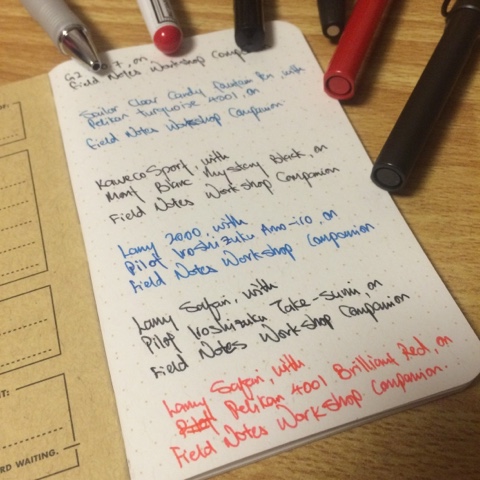 G2 0.7, on
Field Notes Workshop Compa
Sailor Clear Candy fountain Pen, with
Pelikan turquoise 4001, on
Field Notes Workshop Companion.
Kaweco Sport, with
Mont Blanc Mystery Black, on
Field Notes Workshop Companion
Lamy 2000, with
Pilot Iroshizuku Ama-iro, on
Field Notes Workshop Companion
Lamy Safari, with
Pilot Iroshizuku Take-Sumi, on
Field Notes Workshop Companion
Lamy Safari, with
Pilot Pelikan 4001 Brilliant Red, on
Field Notes Workshop Companion.
RD WAITING.